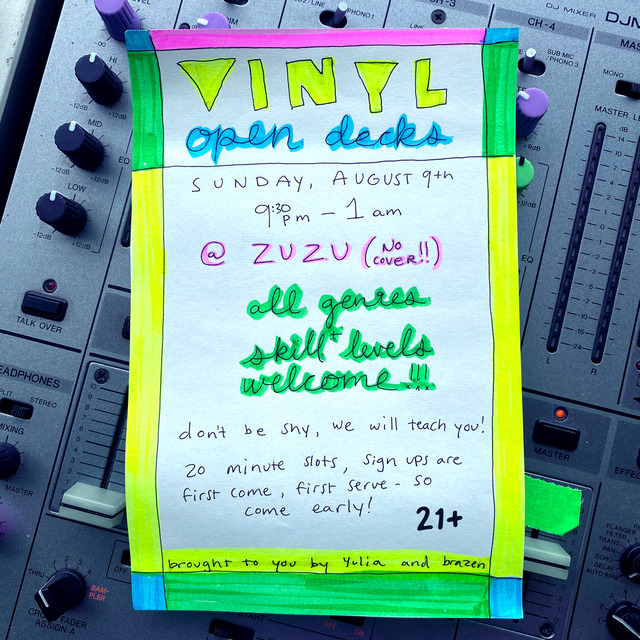 VINYL
open decks
SUNDAY, AUGUST 9th
9:30 pm - 1 am
@ ZUZU (NO COVER!!)
all genres
+
skill levels
welcome!!!
don't be shy, we will teach you!
20 minute slots, sign ups are
first come, first serve - so
come early!
21+
brought to you by Yulia and brazen
HI
-12dB
12dB
MID
-12dB
12dB
EQ
LOW
-12dB
12dB
TALK OVER
HEADPHONES
SPLIT
STEREO
MIXING
MASTER
10
THRU
SAMPLER
CROSS FADER
ASSIGN A
OFF
PHONO 1
CH-4
DJ MIXER
DJM
SUB MIC
/PHONO 3
MONO
MASTER LEVEL
L
R
MASTER
CH-3
EFFECT
FLANGER
FILTER
TRANS
PAN
ECHO
DELAY
AUTO BPM